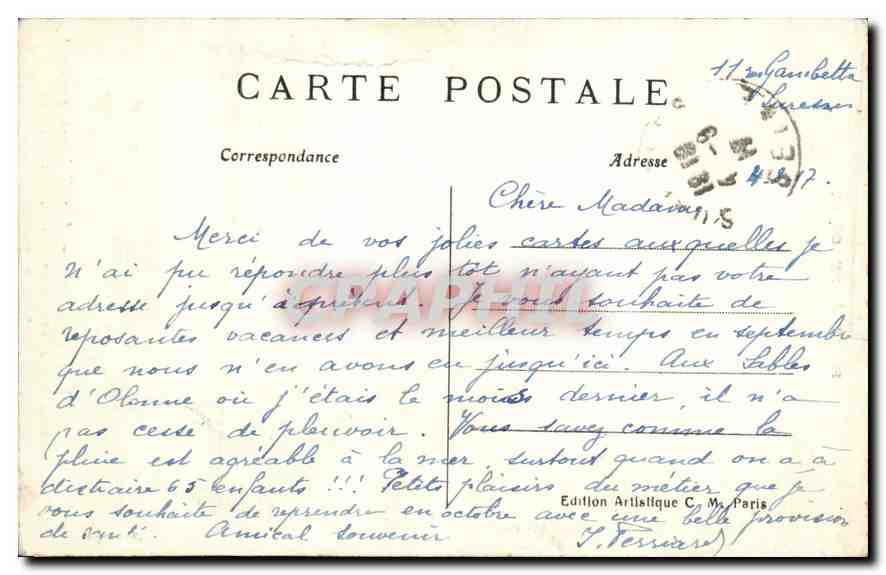 11 rue Gambetta
Suresnes
CARTE POSTALE
Correspondance
Adresse
Chère Madame
Merci de vos jolies cartes auxquelles je
n'ai pu répondre plus tôt n'ayant pas votre
adresse jusqu'à présent. Je vous souhaite de
reposantes vacances et meilleur temps en septembre
que nous n'en avons eu jusqu'ici. Aux Sables
d'Olonne où j'étais le mois dernier, il n'a
pas cesse de pleuvoir. Vous savez comme la
pluie est agréable à la mer, surtout quand on a à
distraire 65 enfants !!! Petits plaisirs du métier que je
Edition Artistique C. M. Paris
vous souhaite de reprendre en octobre avec une belle provision
de santé. Amical souvenir
CPAPHIL